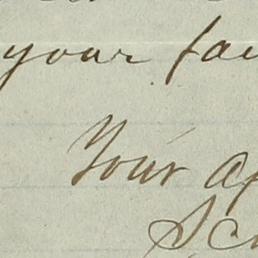 your fa
Your af
Sc